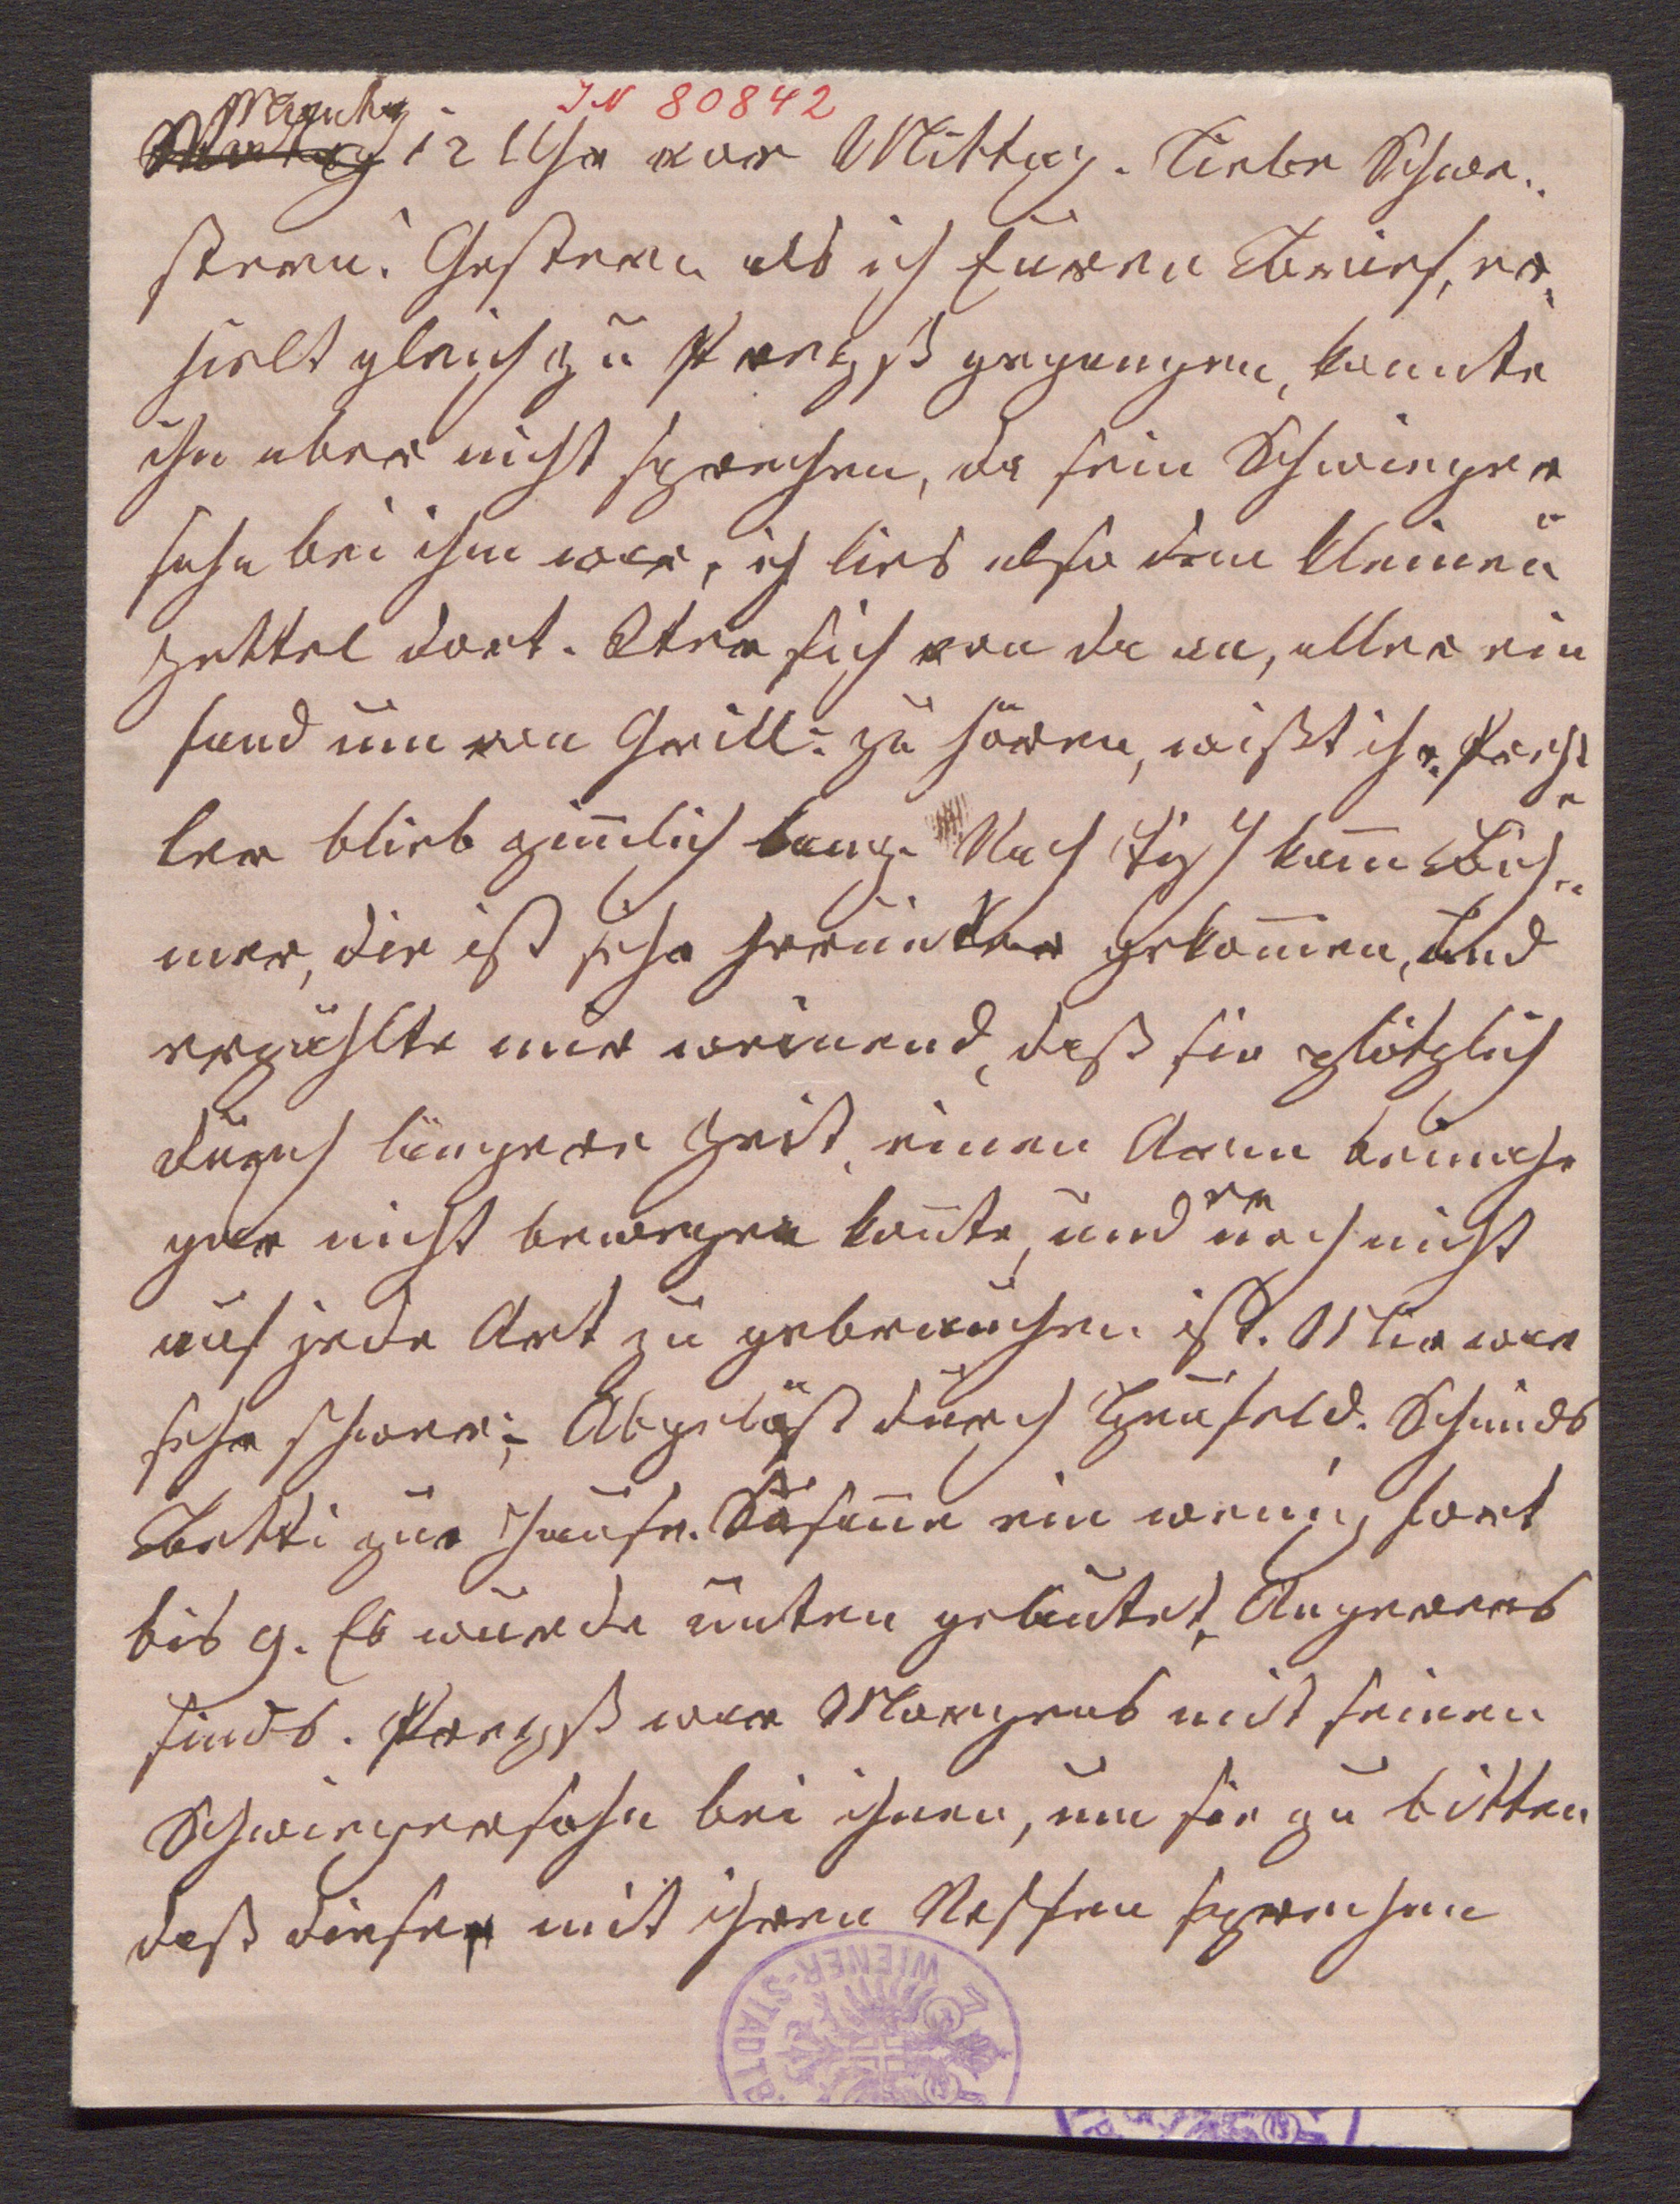 IN 80842
Montag
12 Uhr vor Mittag. Liebe Schwe-
stern! Gestern als ich Euren Brief, er-
hielt gleich zu gegangen, konnte
ihn aber nicht sprechen, da sein Schwieger
sohn bei ihm war, ich lies also den kleinen
Zettel dort. Wer sich von da an, aller ein
fand um von Grill: zu hören, wißt ihr.
ler blieb zimlich lang. Nach Tisch kam
mer, die ist sehr herunter gekommen, und
erzählte mir weinend, daß sie plötzlich
durch längere Zeit, einen Arm beinahe
gar nicht bewegen konnte, und er noch nicht
auf jede Art zu gebrauchen ist. Mir war
sehr schwer; Abgelößt durch
Betti zur Hause. Susanne ein wenig fort
bis 9. Es wurde unten geläutet,
sinds. war Morgens mit seinen
Schwiegersohn bei ihnen, um sie zu bitten
daß dieser mit ihren Neffen sprechen
WIENER-STADTB